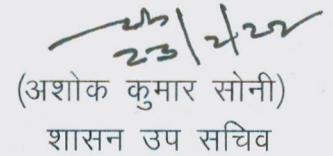 23/2/22
(अशोक कुमार सोनी)
शासन उप सचिव